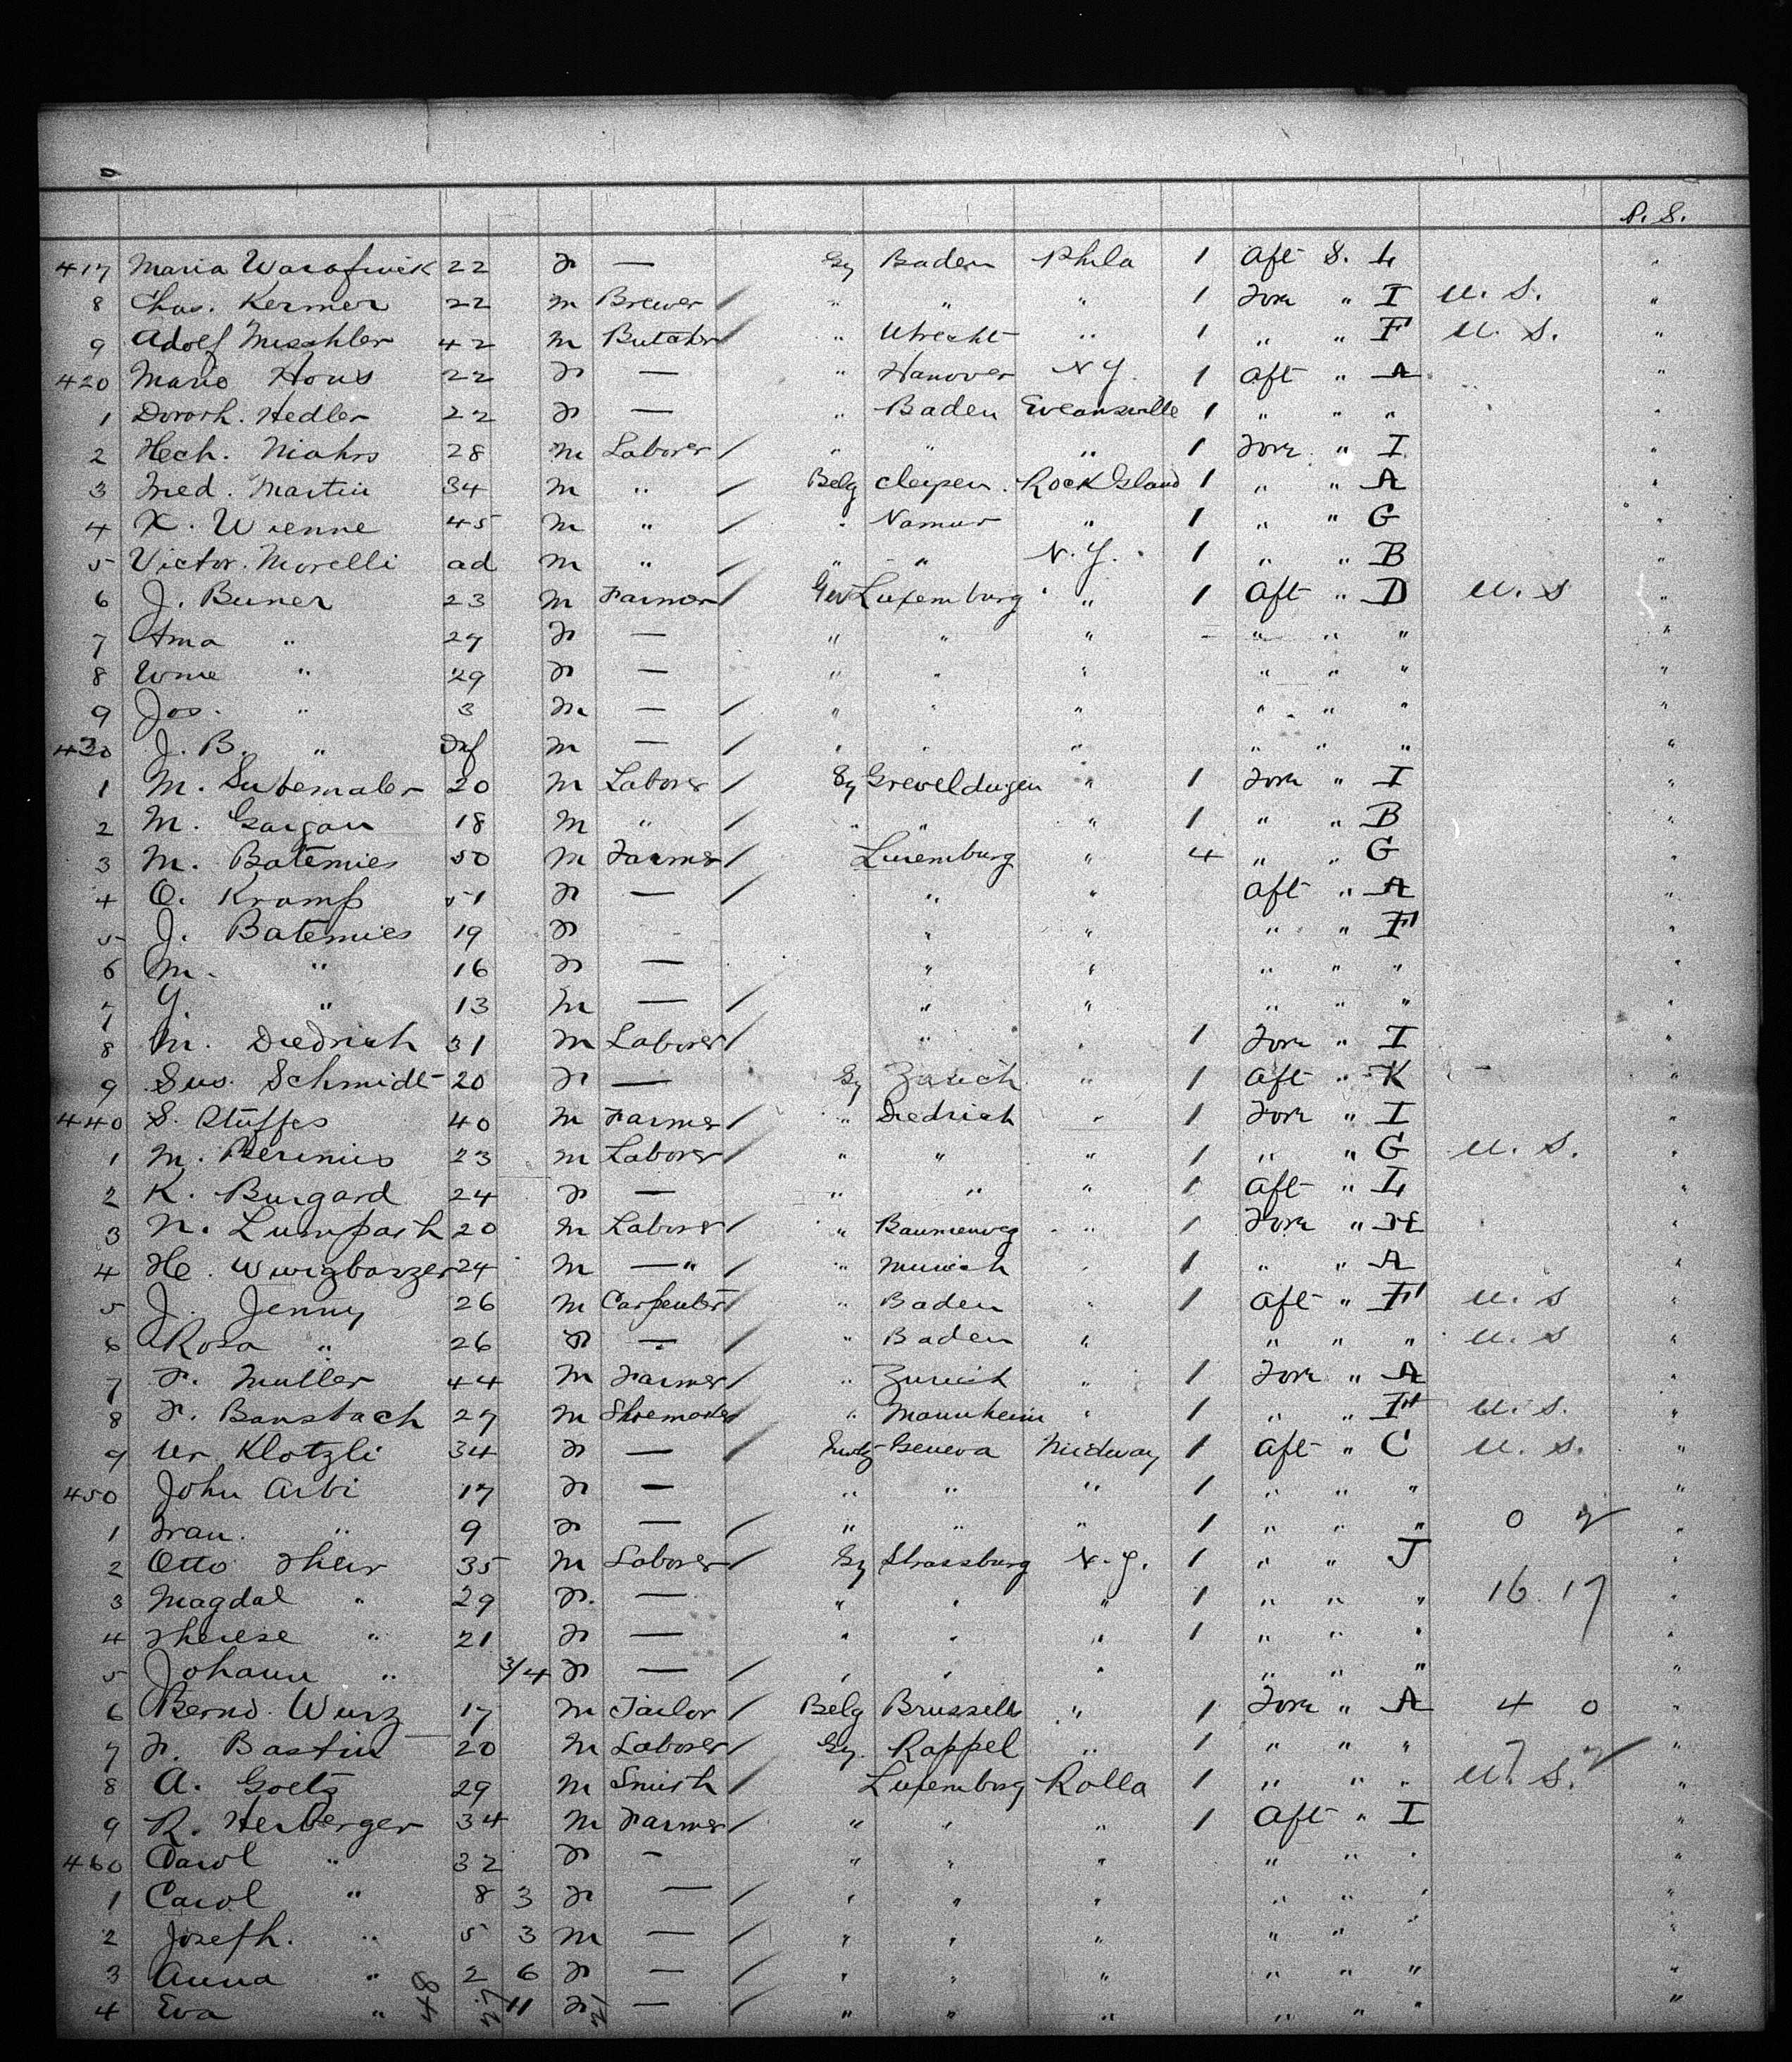 P. S.
417 Maria 22 F — Gy Baden Phila 1 Aft S. L "
8 Chas. Kermer 22 M Brewer / " " " 1 Forw " I U. S. "
9 Adolf Mischler 42 M Butcher / " Utrecht " 1 " " F U. S. "
420 Marie Hous 22 F — " Hanover N Y. 1 Aft " A "
1 Doroth. Hedler 22 F — " Baden Eveansville 1 " " " "
2 Hech. Niahrs 28 M Laborer / " " " 1 Forw " I "
3 Fred. Martin 34 M " / Belg Rock Island 1 " " A "
4 X. Wienne 45 M " / " Namur " 1 " " G "
5 Victor. Morelli ad M " / " " N. Y. 1 " " B "
6 J. Beiner 23 M Farmer / Ger Luxemburg " 1 Aft " D U. S "
7 Ama " 27 F — " " " - " " " "
8 " 29 F — " " " " " " "
9 Jos. " 3 M — / " " " " " " "
430 J. B. " Inf M — / " " " " " " "
1 M. Subemaler 20 M Laborer / Gy Greveldugen " 1 Forw " I "
2 M. Gargan 18 M " / " " " 1 " " B "
3 M. Batemies 50 M Farmer / Luxemburg " 4 " " G "
4 O. Kramp 51 F — / " " Aft " A "
5 J. Batemies 19 F " " " " F "
6 M. " 16 F — " " " " " "
7 Y. " 13 M — / " " " " " "
8 M. Diedrich 31 M Laborer / " " 1 Forw " I "
9 Sus. Schmidt 20 F — Gy Zurich " 1 Aft " K "
440 S. Stuffes 40 M Farmer / " Diedrich " 1 Forw " I "
1 M. 23 M Laborer / " " " 1 " " G U. S. "
2 K. Burgard 24 F — " " " 1 Aft " L "
3 N. Lumpash 20 M Laborer / " Baumenweg " 1 Forw " H "
4 He. 24 M — " / " Munich " 1 " " A "
5 J. Jenny 26 M Carpenter / " Baden " 1 Aft " F U. S "
6 Rosa " 26 F — / " Baden " " " " U. S "
7 F. Muller 44 M Farmer / " Zurich " 1 Forw " A "
8 F. Bansbach 27 M Shoemaker / " Mannheim " 1 " " F U. S. "
9 Ur Klotzli 34 F — / Switz Geneva Midway 1 Aft " C U. S. "
450 John Arbi 17 F — " " " 1 " " " "
1 Fran. " 9 F — / " " " 1 " " " 0 "
2 Otto Their 35 M Laborer / Gy Strassburg N. Y. 1 " " J "
3 Magdal " 29 F. — " " " 1 " " " 16 17 "
4 Therese " 21 F — " " " 1 " " " "
5 Johann " 3/4 F — / " " " " " " "
6 Bernd. Wurz 17 M Tailor / Belg Brussells " 1 Forw " A 4 0 "
7 F. Bastin 20 M Laborer / Gy. Rappel " 1 " " " "
8 A. Goetz 29 M Smith / Luxemburg Rolla 1 " " " U. S. "
9 R. Herberger 34 M Farmer / " " " 1 Aft " I "
460 Carol " 32 F — " " " " " " "
1 Carol " 8 3 F — / " " " " " " "
2 Joseph. " 5 3 M — / " " " " " "
3 Anna " 2 6 F — / " " " " " " "
4 Eva " 11 F — / " " " " " " "
48 27 21